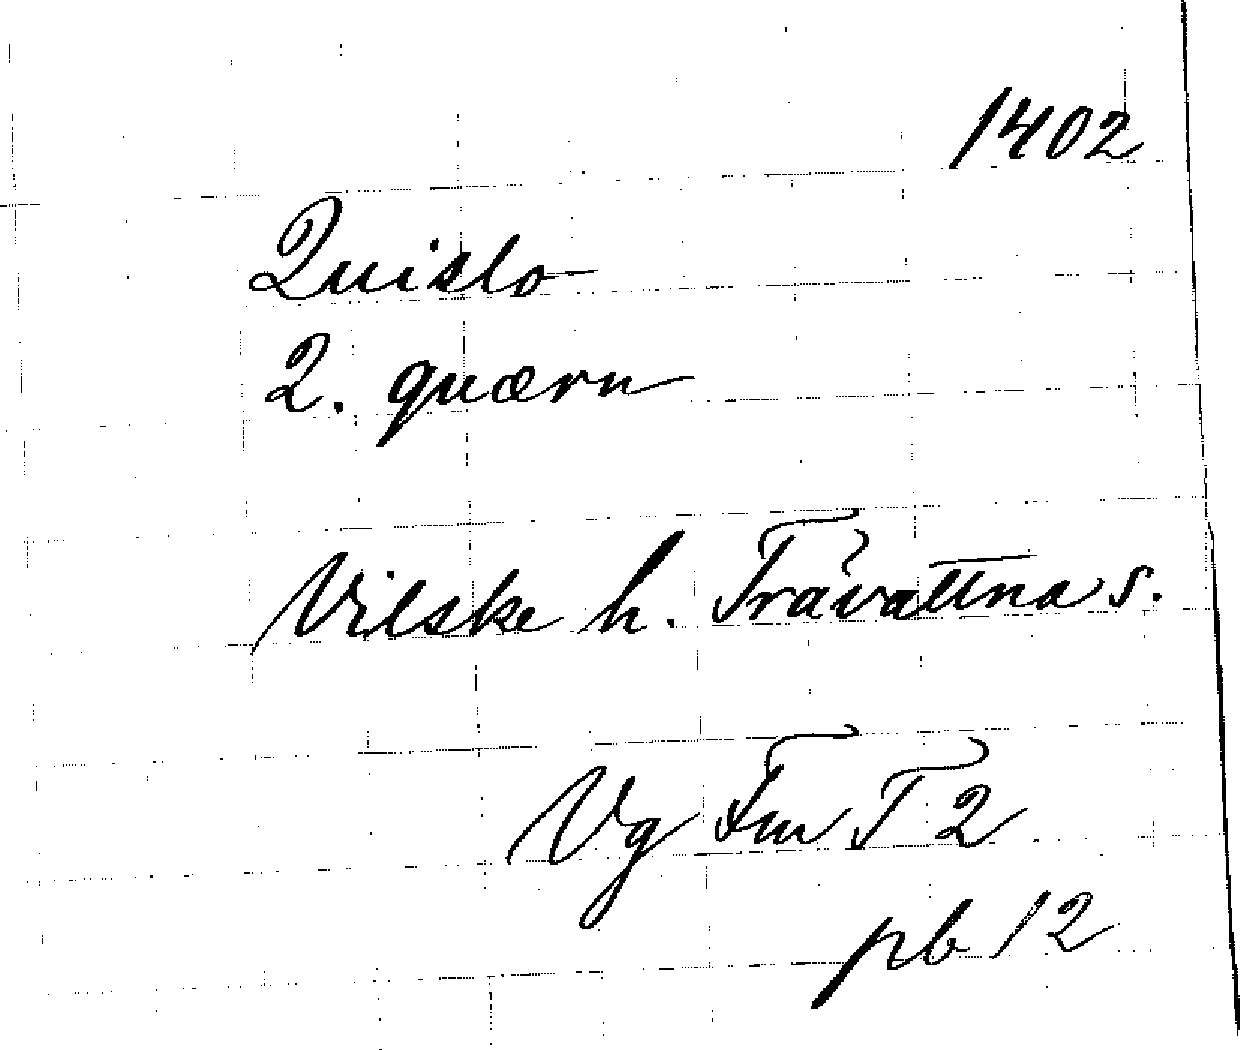 1402
Quislo
2. quærn
Vilske h. Trävattna s.
Vg Fm T 2
pb 12